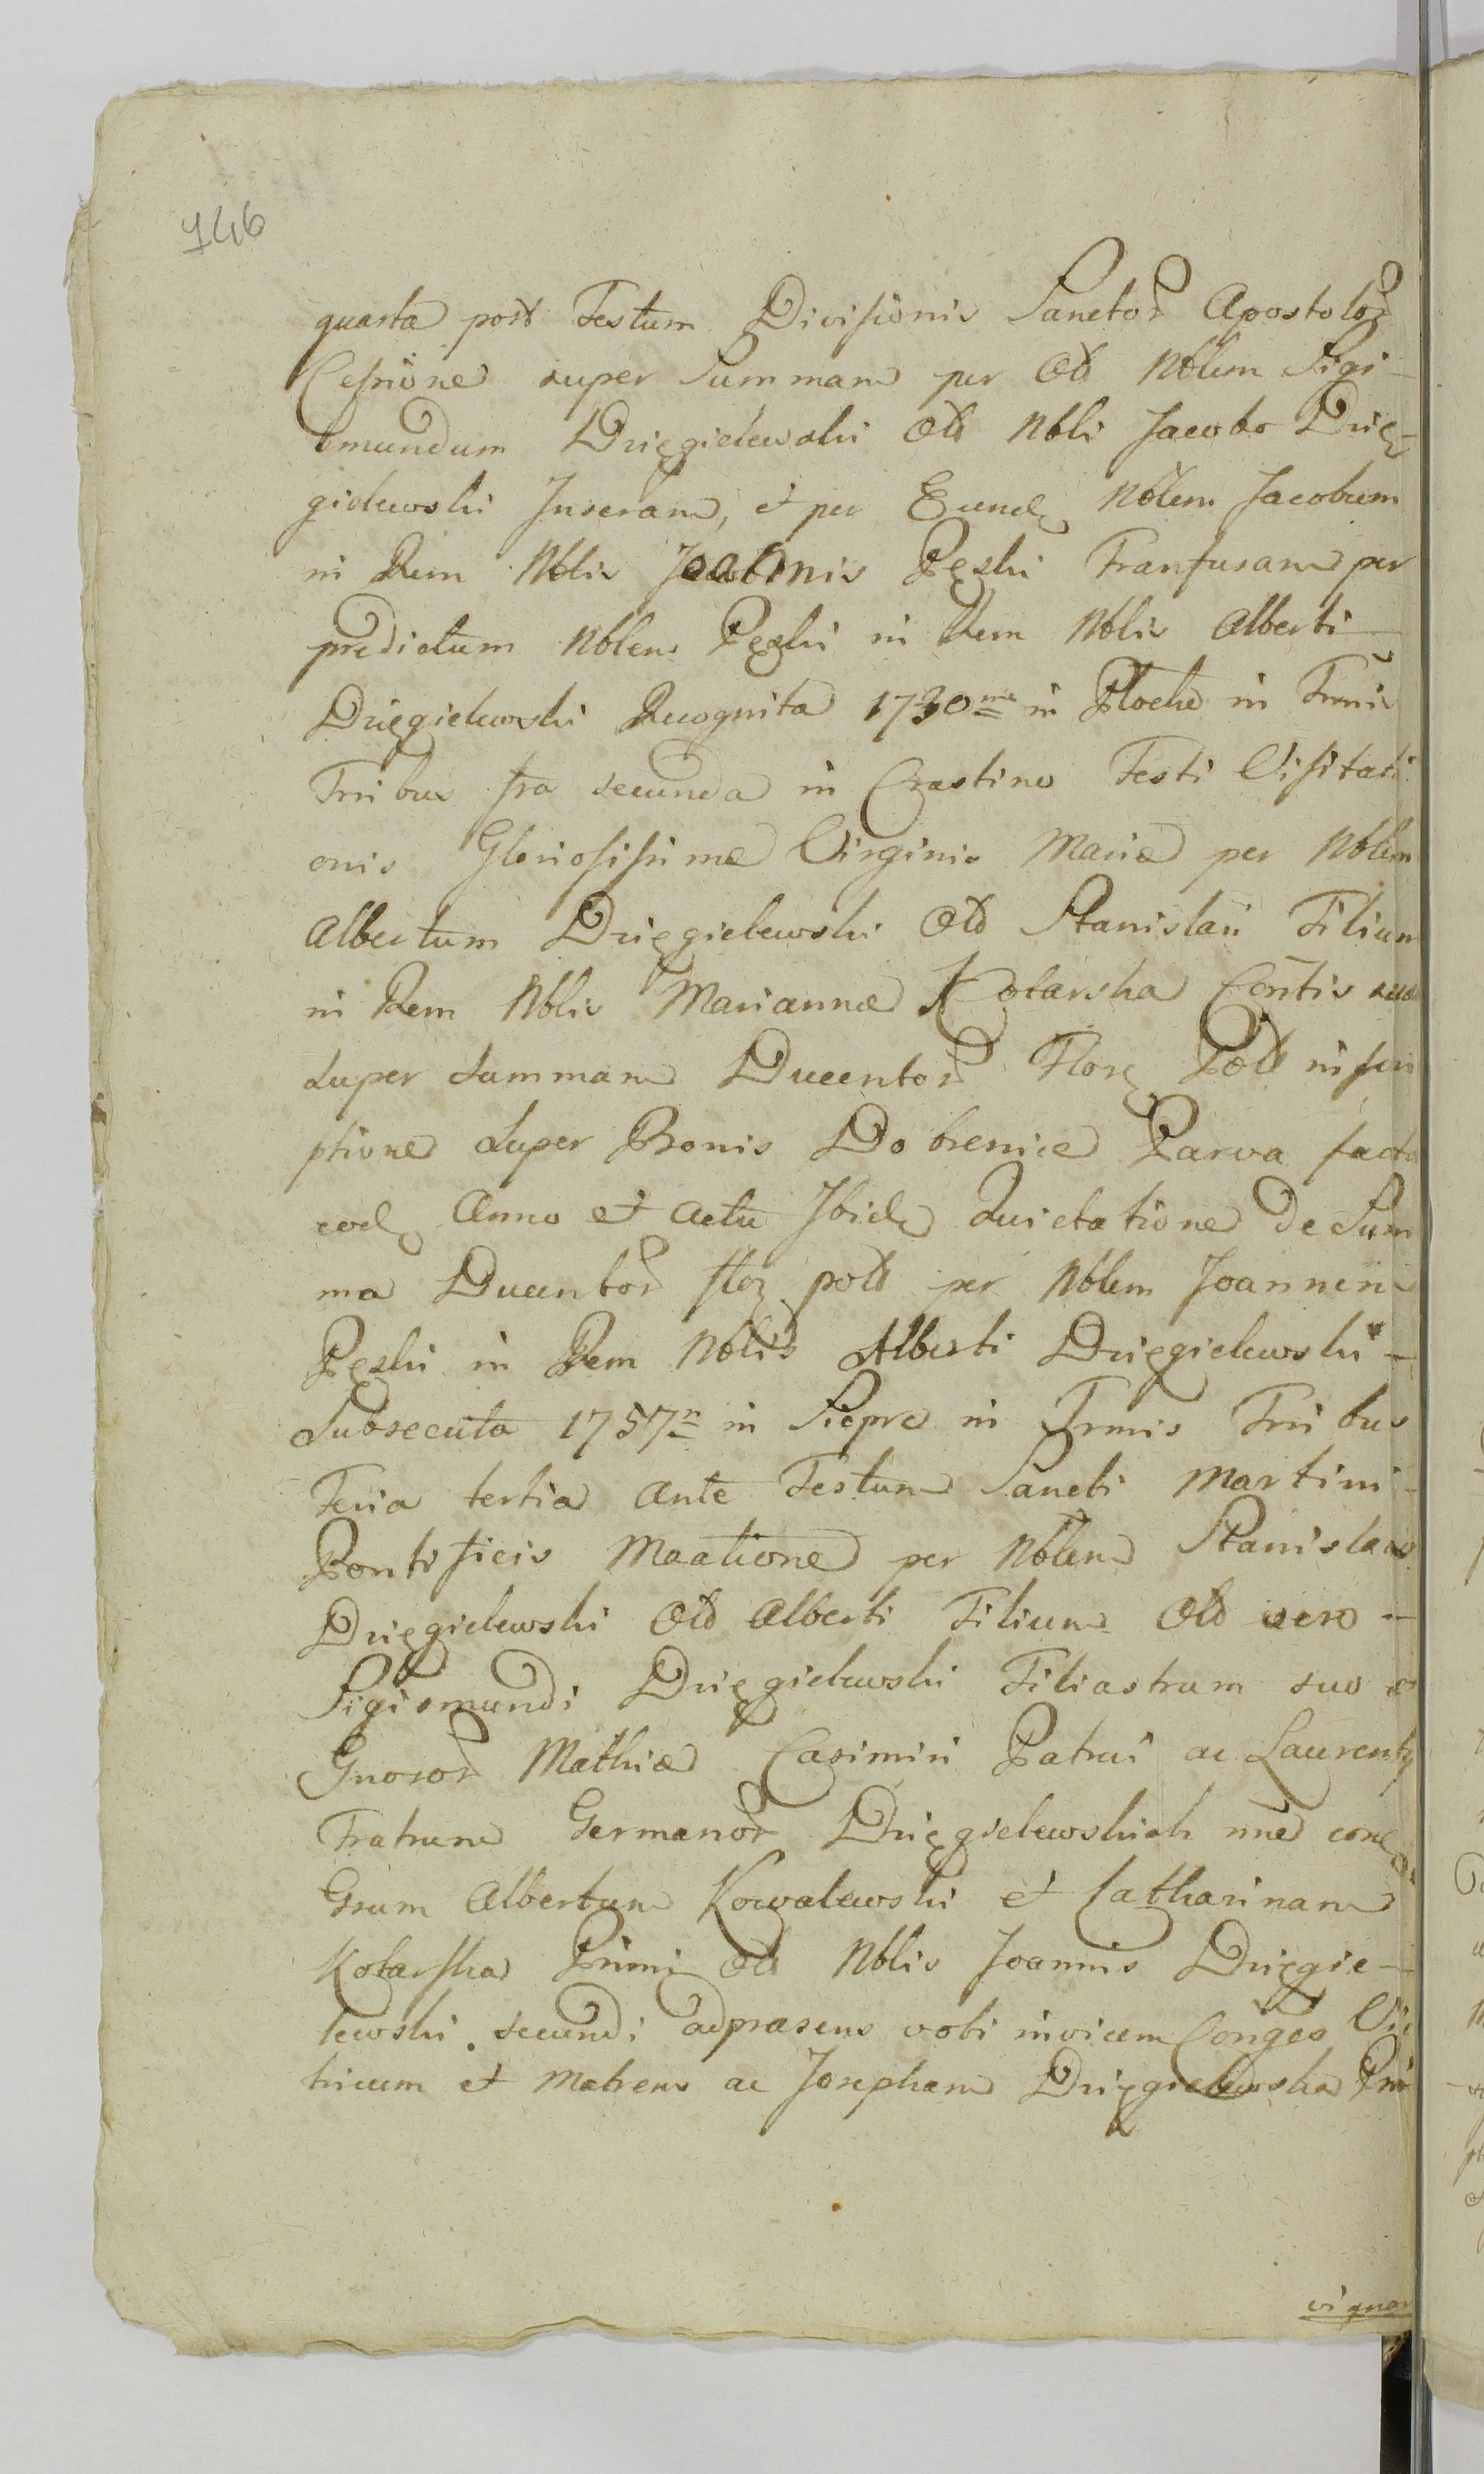 746
quarta post Festum Divisionis Sanctor Apostolor
Cessione super Summam per Old Nblem Sigi-
smundum Dzięgielewski Old Nbli Jacobo Dzię-
gielewski Inseram, et per Eund Nblem Jacobum
in Rem Nblis Joannis Pęski Transfusam per
predictum Nblem Pęski in Rem Nblis Alberti
Dzięgielewski Recognita 1730mo in Plocke in Trmis
Trribus fra secunda in Crastino Festi Visitati
onis Gloriosissimæ Virginis Mariæ per Nblem
Albertum Dzięgielewski Old Stanislaii Filium
in Rem Nblis Mariannæ Kotarska Contis suæ
super Summam Ducentor Flor Poll inscri
ptione super Bonis Dobrenice Parva facta
eod Anno et Actu Ibid Quietatione de Sum
ma Ducentor flor poll per Nblem Joannem
Pęski in Rem Nblis Alberti Dzięgielewski -
Subsecuta 1757n in Siepre in Trmis Trribus
Feria tertia ante Festum Sancti Martini
Pontificis Maatione per Nblem Stanislaus
Dzięgielewski Old Alberti Filium Old vero -
Sigismundi Dzięgielewski Filiastrum suo et
Gnosor Mathiæ Casimiri Patrui ac Laurentj
Fratrum Germanor Dzięgielewskich nne
Grum Albertum Kowalewski et Catharinam
Kotarska Primi Old Nblis Joannis Dzięgie-
lewski secundi adpræsens voti invicem Conges Vi
tricum et Matrem ac Josepham Dzięgielewska Pri